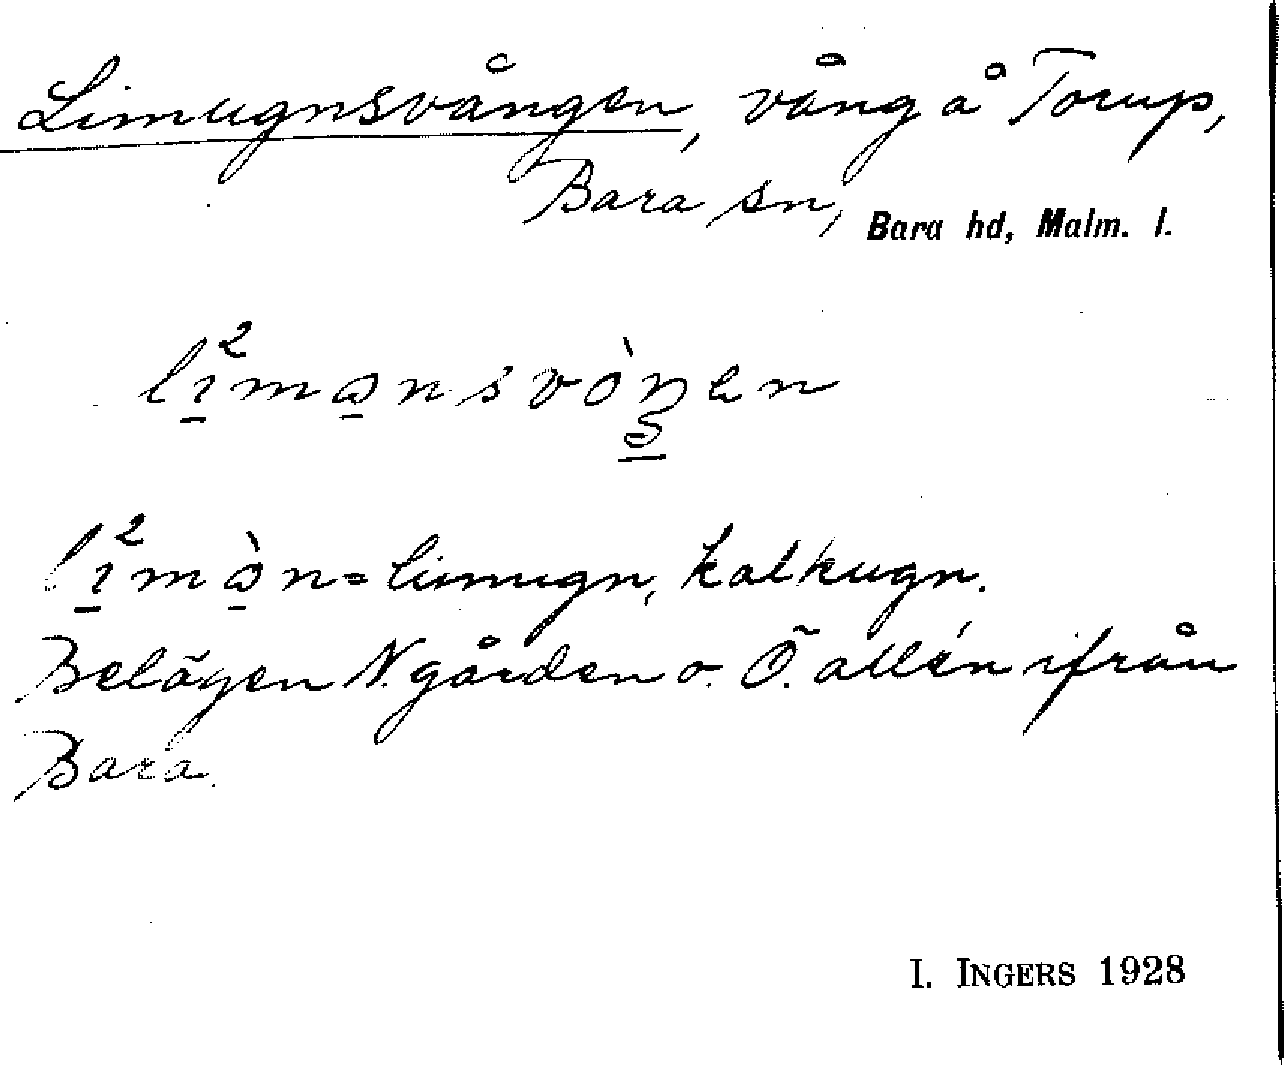 Limugnsvången, vång å Torup,
Bara sn, Bara hd, Malm. l.
lı̱²mə̱nsvòŋ̱en
lı̱²mə̱̀n = limugn, kalkugn.
Belägen N. gården o. Ö. allén ifrån
Bara.
I. INGERS 1928